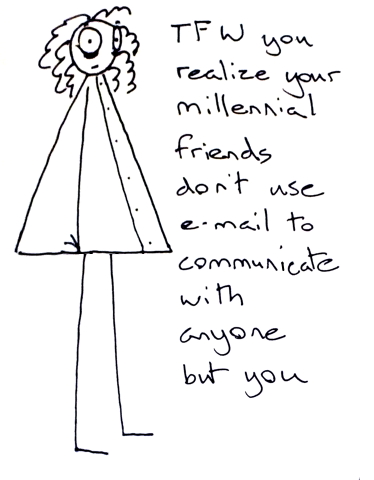 TFW you
realize your
millennial
friends
don't use
e-mail to
communicate
with
anyone
but you